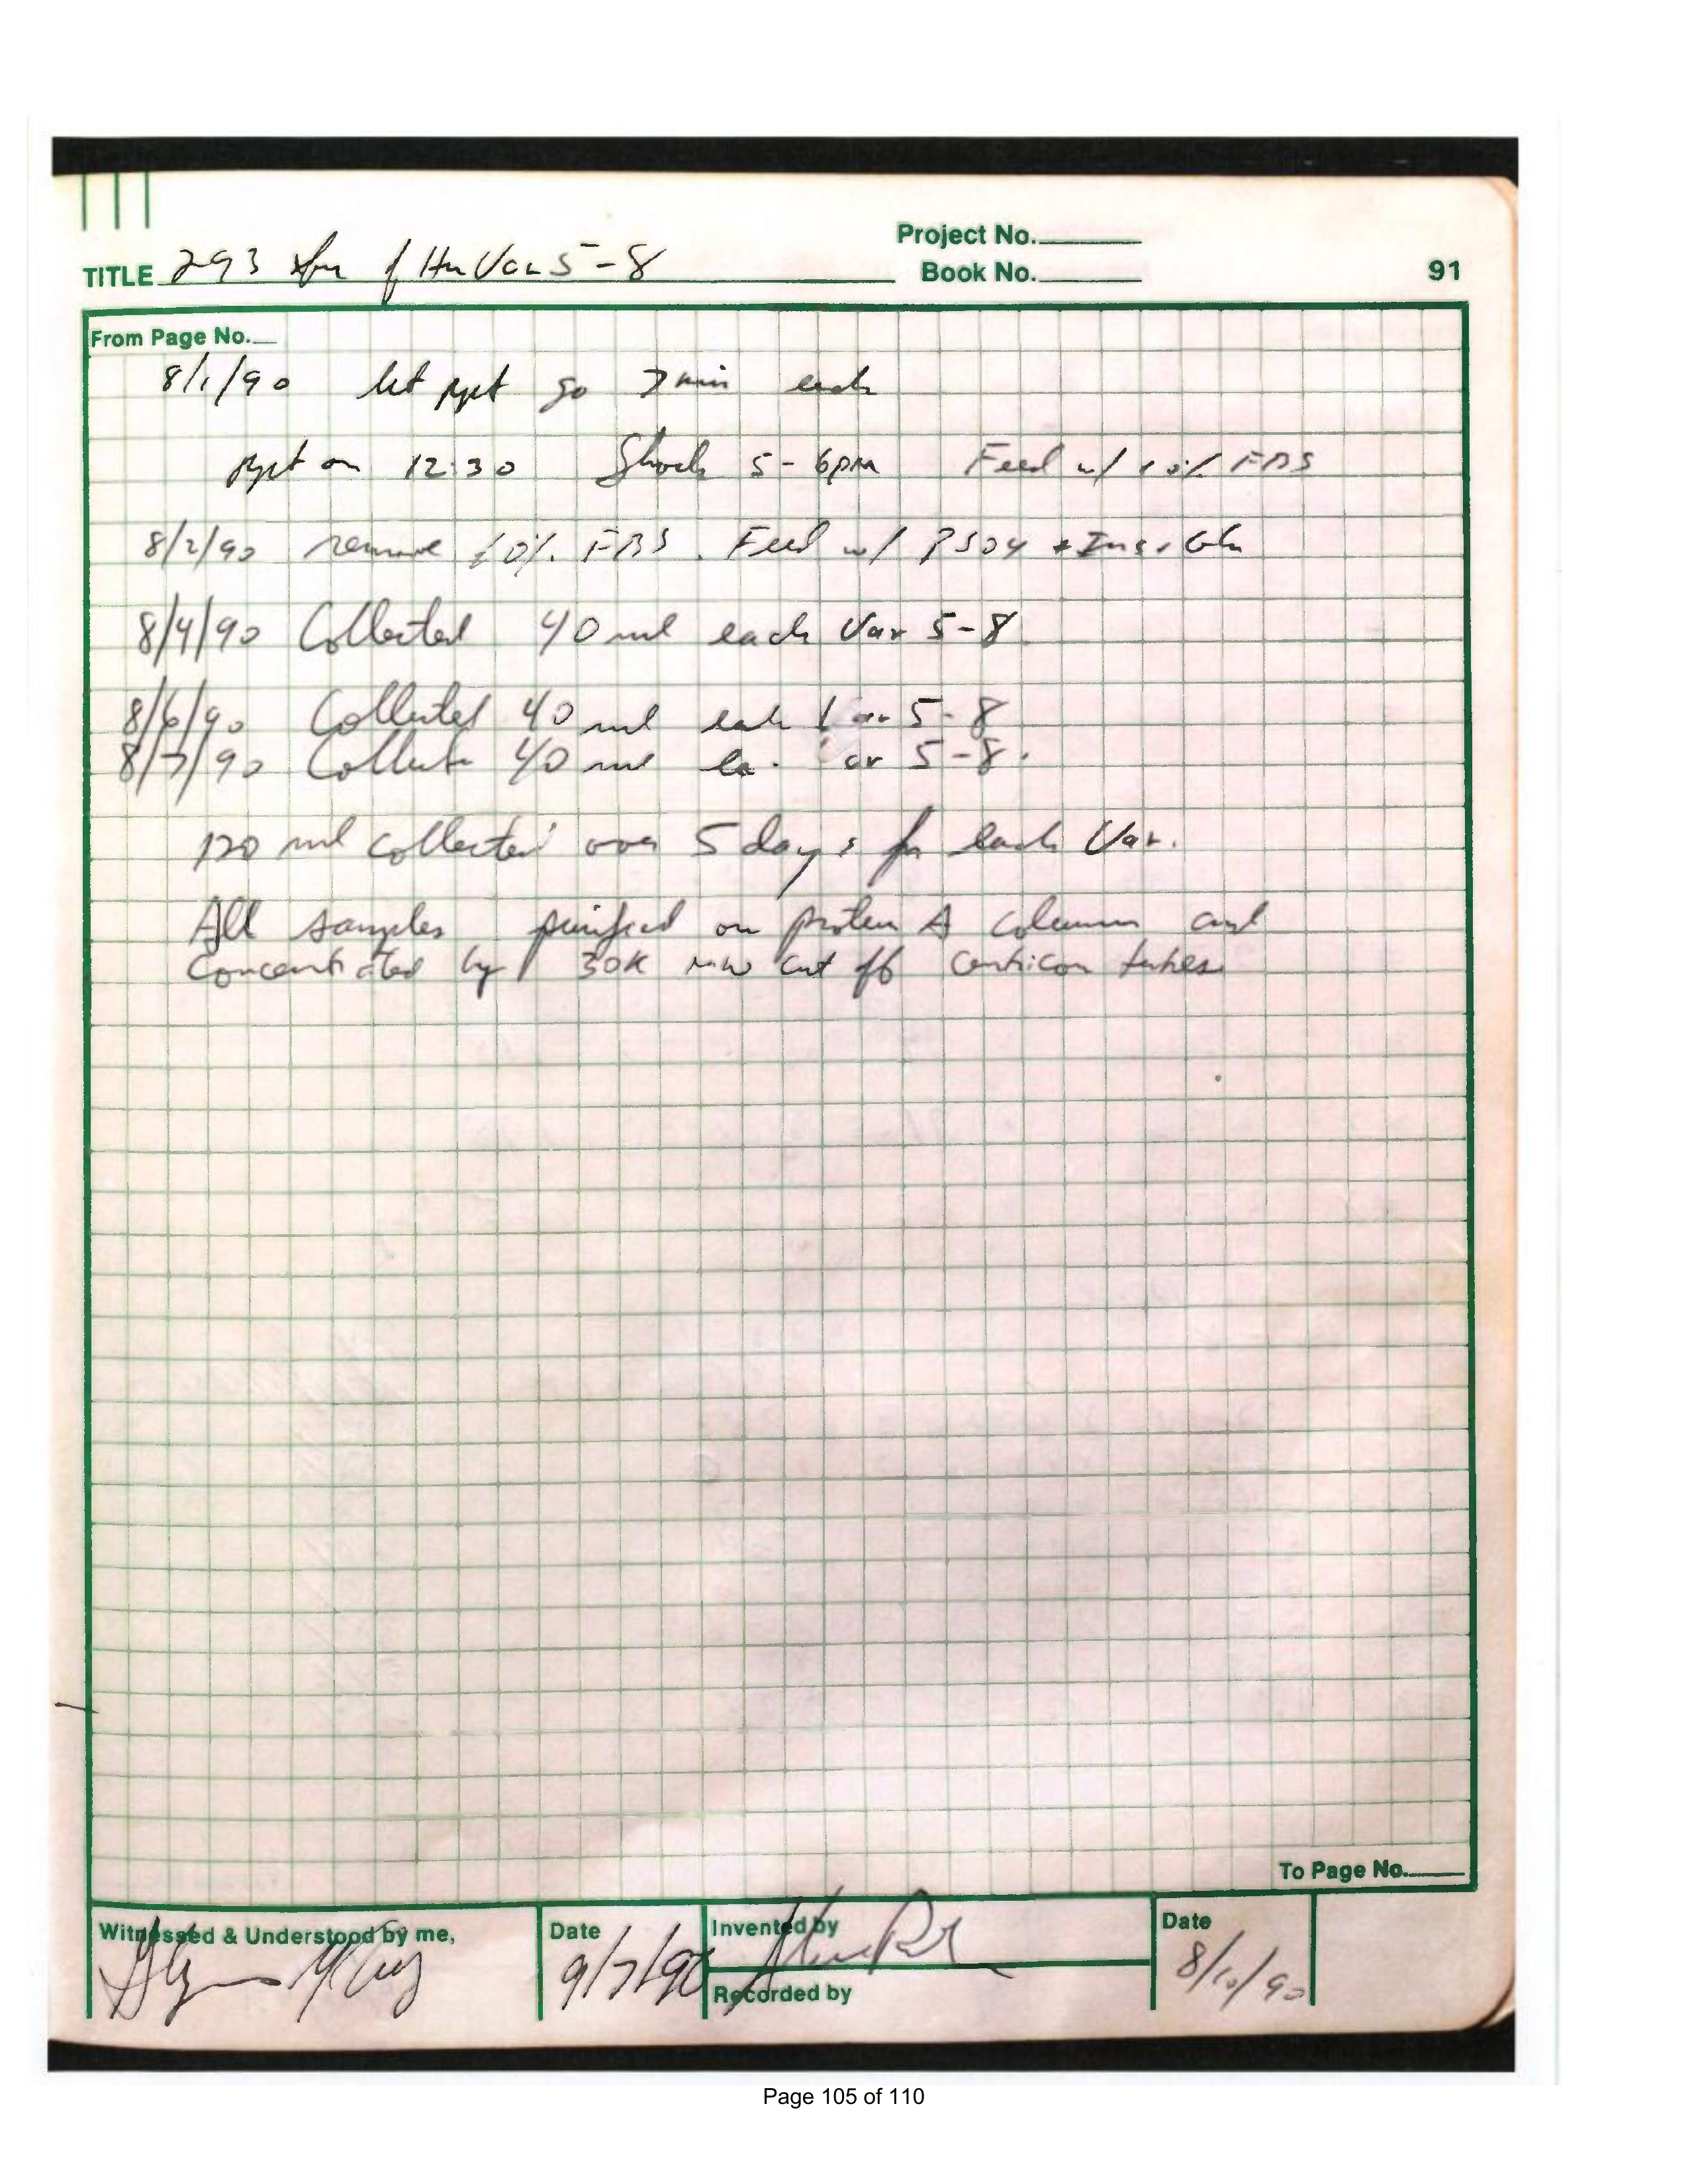 Project No.
TITLE 293 xfm of Hu Var 5-8
Book No.
91
From Page No.
8/1/90 let ppt go 7 min each
ppt on 12:30 Shock 5-6pm Feed w/ 10% FBS
8/2/90 remove 10% FBS. Feed w/ PS04 + Ins + Gln
8/4/90 Collected 40 ml each Var 5-8
8/6/90 Collected 40 ml each Var 5-8
8/7/90 Collect 40 ml ea. Var 5-8.
120 ml collected over 5 days for each Var.
All samples purified on protein A column and
Concentrated by 30K MW cut off centricon tubes
To Page No.
Witnessed & Understood by me,
Date
9/7/90
Invented by
Recorded by
Date
8/10/90
Page 105 of 110